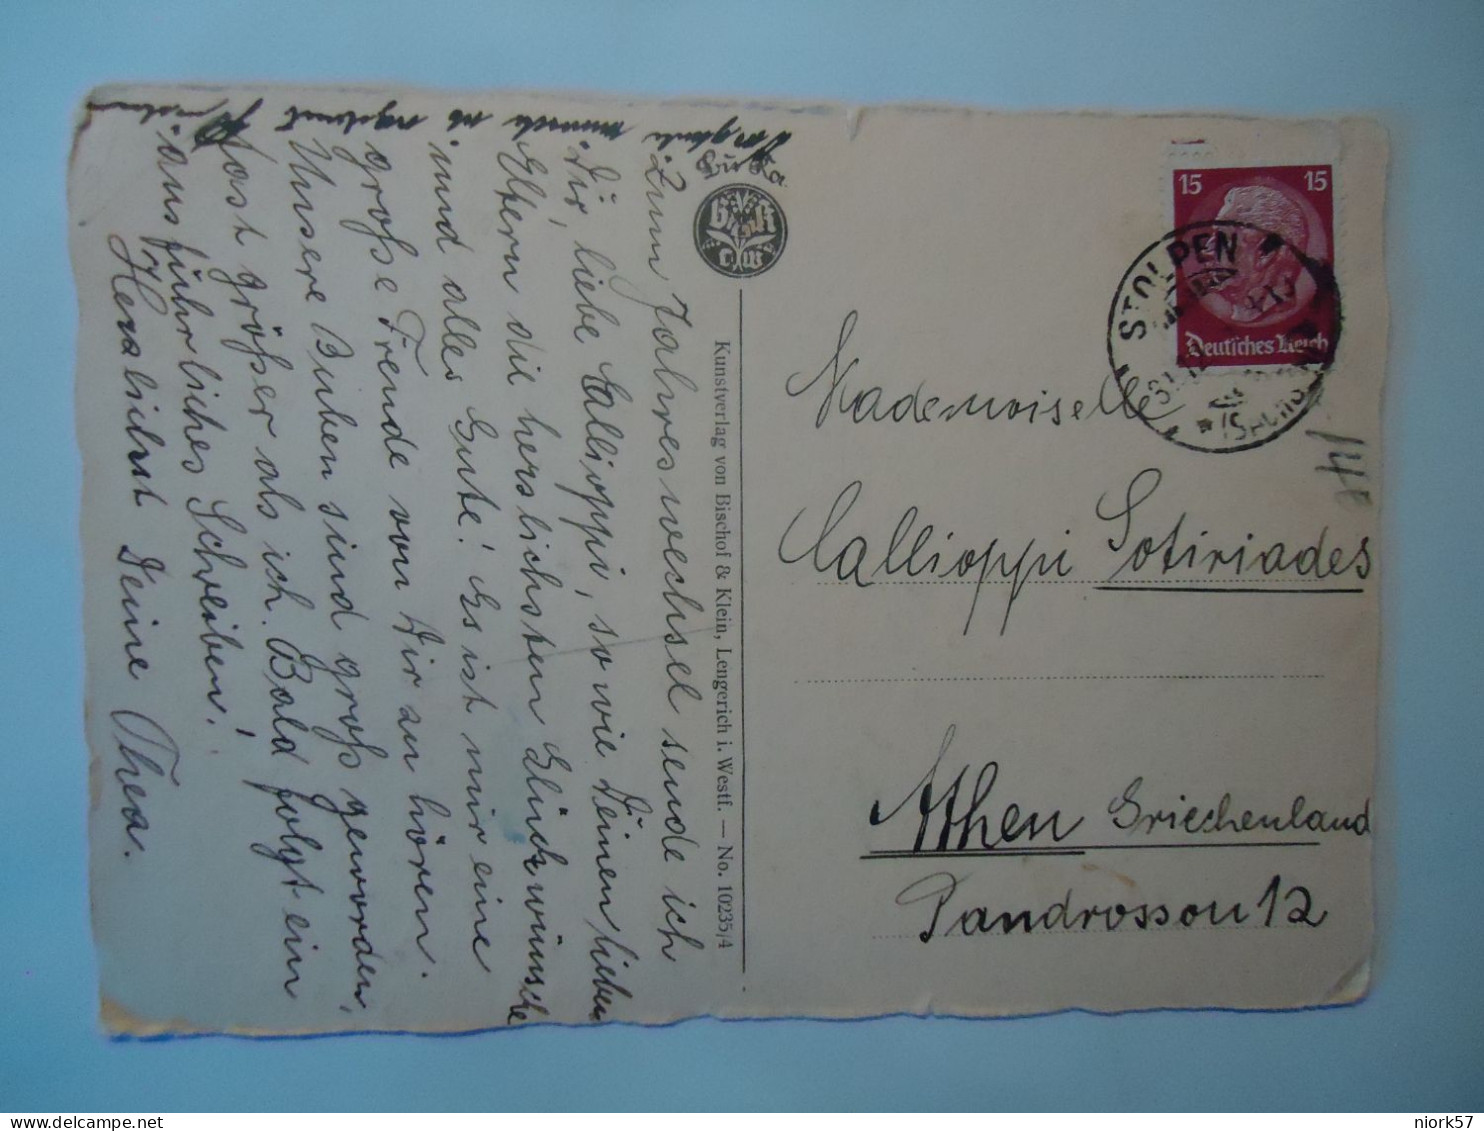 Zum Jahreswechsel sende ich
Dir, liebe Callioppi, sowie Deinen lieben
Eltern die herzlichsten Glückwünsche
und alles Gute! Es ist mir eine
große Freude von Dir zu hören.
Unsere Buben sind groß geworden,
fast größer als ich. Bald folgt ein
ausführliches Schreiben!
Herzlichst Deine Thea.
BiKa
B K
L W
Kunstverlag von Bischof & Klein, Lengerich i. Westf. — No. 10235/4
15 15
Deutsches Reich
STOLPEN
(SACHS
Mademoiselle
Callioppi Sotiriades
Athen Griechenland
Pandrosson 12
niork57